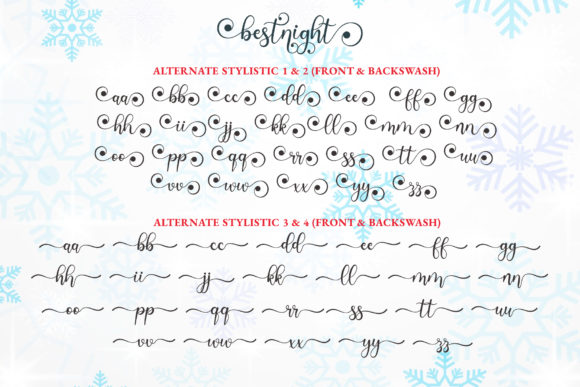 bestnight
ALTERNATE STYLISTIC 1 & 2 (FRONT & BACKSWASH)
aa bb cc dd ee ff gg
hh ii jj kk ll mm nn
oo pp qq rr ss tt uu
vv ww xx yy zz
ALTERNATE STYLISTIC 3 & 4 (FRONT & BACKSWASH)
aa bb cc dd ee ff gg
hh ii jj kk ll mm nn
oo pp qq rr ss tt uu
vv ww xx yy zz